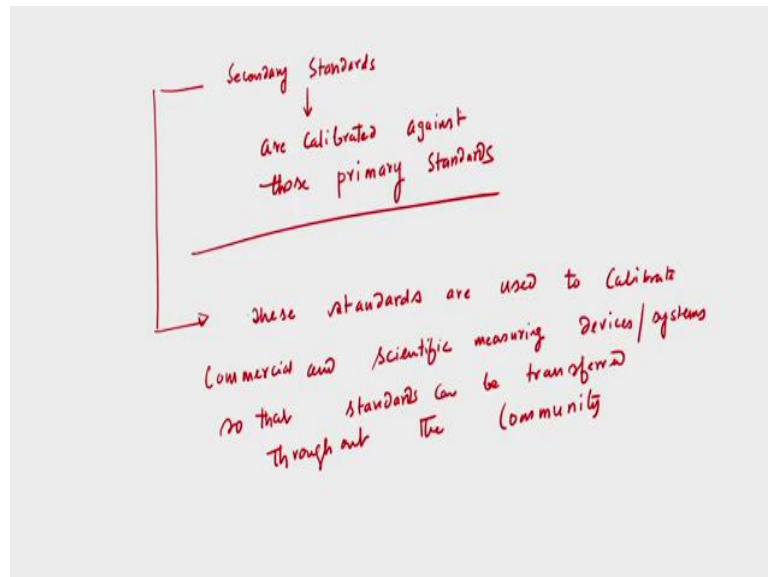 Secondary Standards
are Calibrated against
those primary Standards
These standards are used to Calibrate
Commercial and scientific measuring devices/systems
so that standards can be transferred
Throughout the Community